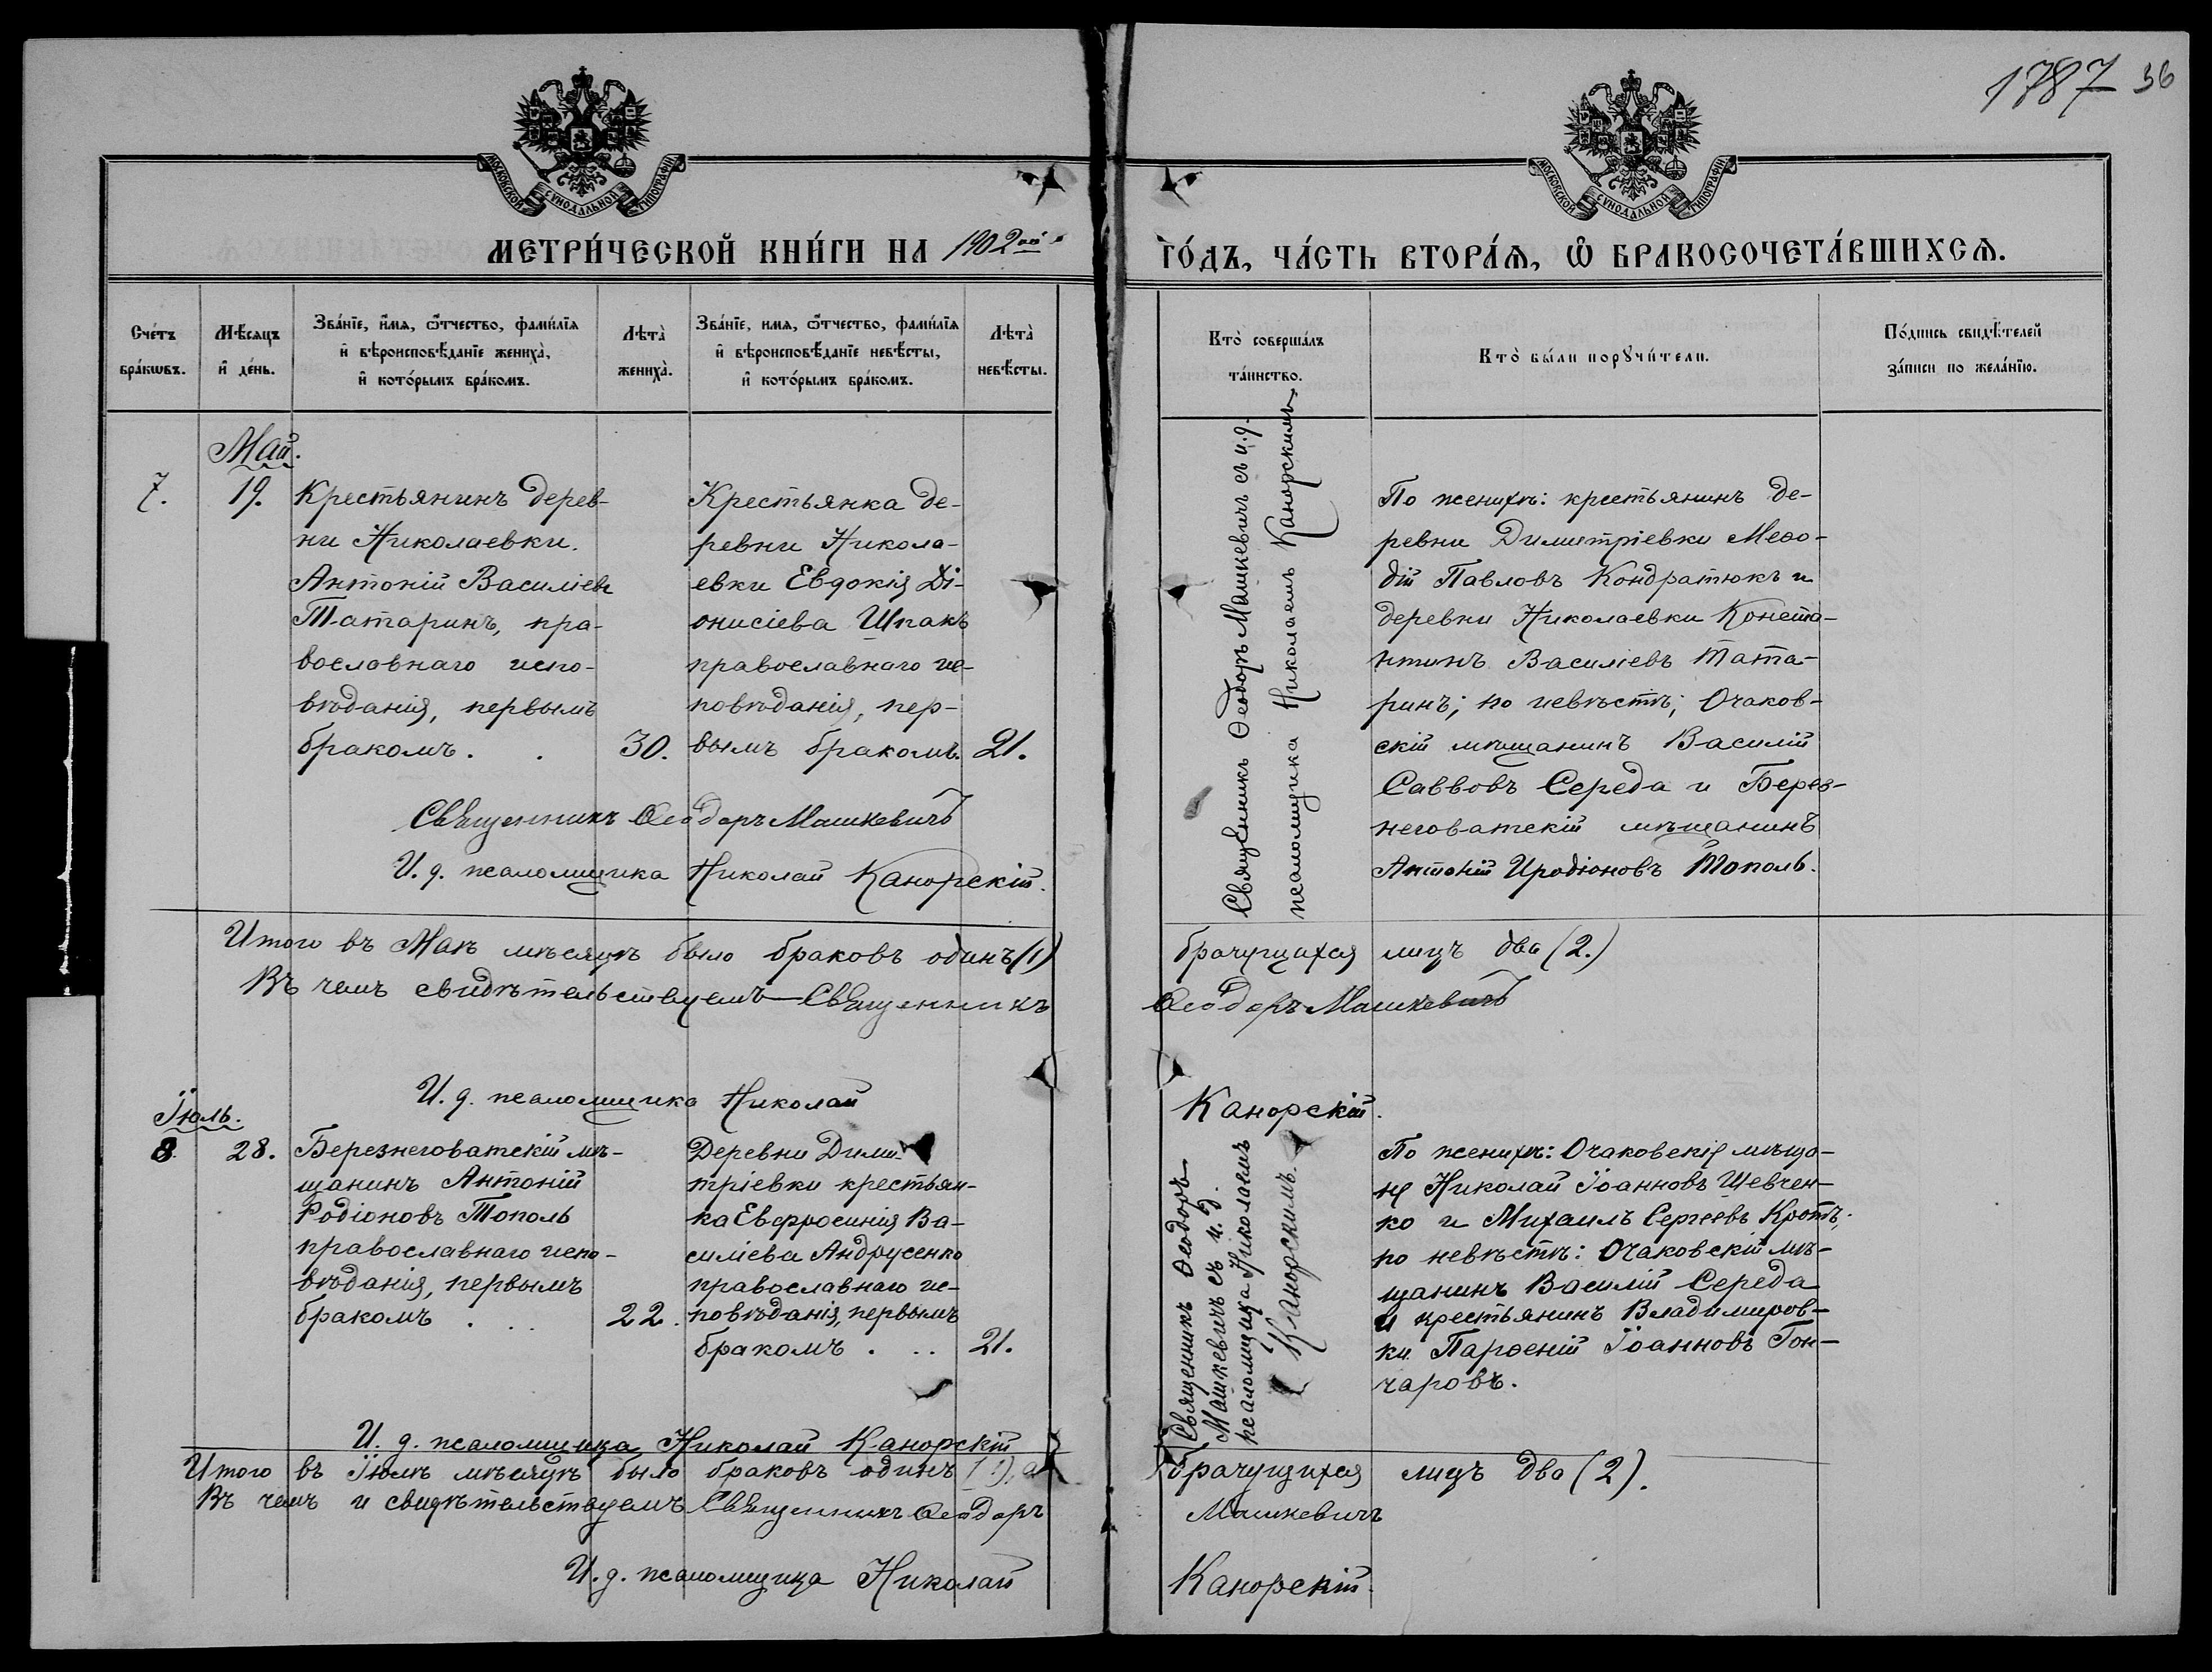 1787 36
МОСКОВСКОЙ СѴНОДАЛЬНОЙ ТИПОГРАФІИ
МОСКОВСКОЙ СѴНОДАЛЬНОЙ ТИПОГРАФІИ
МЕТРИ́ЧЕСКОЙ КНИ́ГИ НА 1902ой
ГО́ДЪ, ЧА́СТЬ ВТОРА́Я, Ѡ БРАКОСОЧЕТА́ВШИХСЯ.
Сче́тъ
бра́кωвъ.
Мѣ́сяцъ
и҆ де́нь.
Зва́нїе, и҆́мя, ѿ́тчество, фами́лїя
и҆ вѣроисповѣ́данїе жениха̀,
и҆ кото́рымъ бра́комъ.
Лѣта̀
жениха̀.
Зва́нїе, имя, ѿ́тчество, фами́лїя
и҆ вѣроисповѣ́данїе невѣ́сты,
и҆ кото́рымъ бра́комъ.
Лѣта̀
невѣ́сты.
Кто̀ соверша́лъ
та́инство.
Кто̀ бы́ли порꙋчи́тели.
По́дпись свидѣ́телей
за́писи по жела́нїю.
Май.
7.
19.
Крестьянинъ дерев-
ни Николаевки.
Антоній Василіевъ
Татаринъ, пра-
вославнаго испо-
вѣданія, первымъ
бракомъ. .
30.
Крестьянка де-
ревни Никола-
евки Евдокія Ді-
онисіева Шпакъ
православнаго ис-
повѣданія, пер-
вымъ бракомъ.
21.
Священникъ Ѳеодоръ Машкевичъ съ и.д.
псаломщика Николаемъ Канорскимъ
По женихѣ: крестьянинъ де-
ревни Димитріевки Меѳо-
дій Павловъ Кондратюкъ и
деревни Николаевки Конста-
нтинъ Василіевъ Тата-
ринъ; по невѣстѣ; Очаков-
скій мѣщанинъ Василій
Саввовъ Середа и Берез-
неговатскій мѣщанинъ
Антоній Иродіоновъ Тополь.
Священникъ Ѳеодоръ Машкевичъ
И. д. псаломщика Николай Канорскій.
Итого въ Маѣ мѣсяцѣ было браковъ одинъ (1)
брачущахся лицъ два (2.)
Въ чемъ свидѣтельствуемъ — Священникъ
Ѳеодоръ Машкевичъ
И. д. псаломщика Николай
Канорскій.
Іюль.
8.
28.
Березнеговатскій мѣ-
щанинъ Антоній
Родіоновъ Тополь
православнаго испо-
вѣданія, первымъ
бракомъ . . .
22.
Деревни Дими-
тріевки крестьян-
ка Евфросинія Ва-
силіева Андрусенко
православнаго ис-
повѣданія, первымъ
бракомъ . . .
21.
Священникъ Ѳеодоръ
Машкевичъ съ и. д.
псаломщика Николаемъ
Канорскимъ.
По женихѣ: Очаковскіе мѣща-
не Николай Іоанновъ Шевчен-
ко и Михаилъ Сергѣевъ Кротъ;
по невѣстѣ: Очаковскій мѣ-
щанинъ Василій Середа
и крестьянинъ Владимиров-
ки Парѳеній Іоанновъ Гон-
чаровъ.
И. д. псаломщика Николай Канорскій
Итого въ Іюлѣ мѣсяцѣ было браковъ одинъ (1), а
брачущихся лицъ два (2).
Въ чемъ и свидѣтельствуемъ Священникъ Ѳеодоръ
Машкевичъ
И. д. псаломщика Николай
Канорскій.